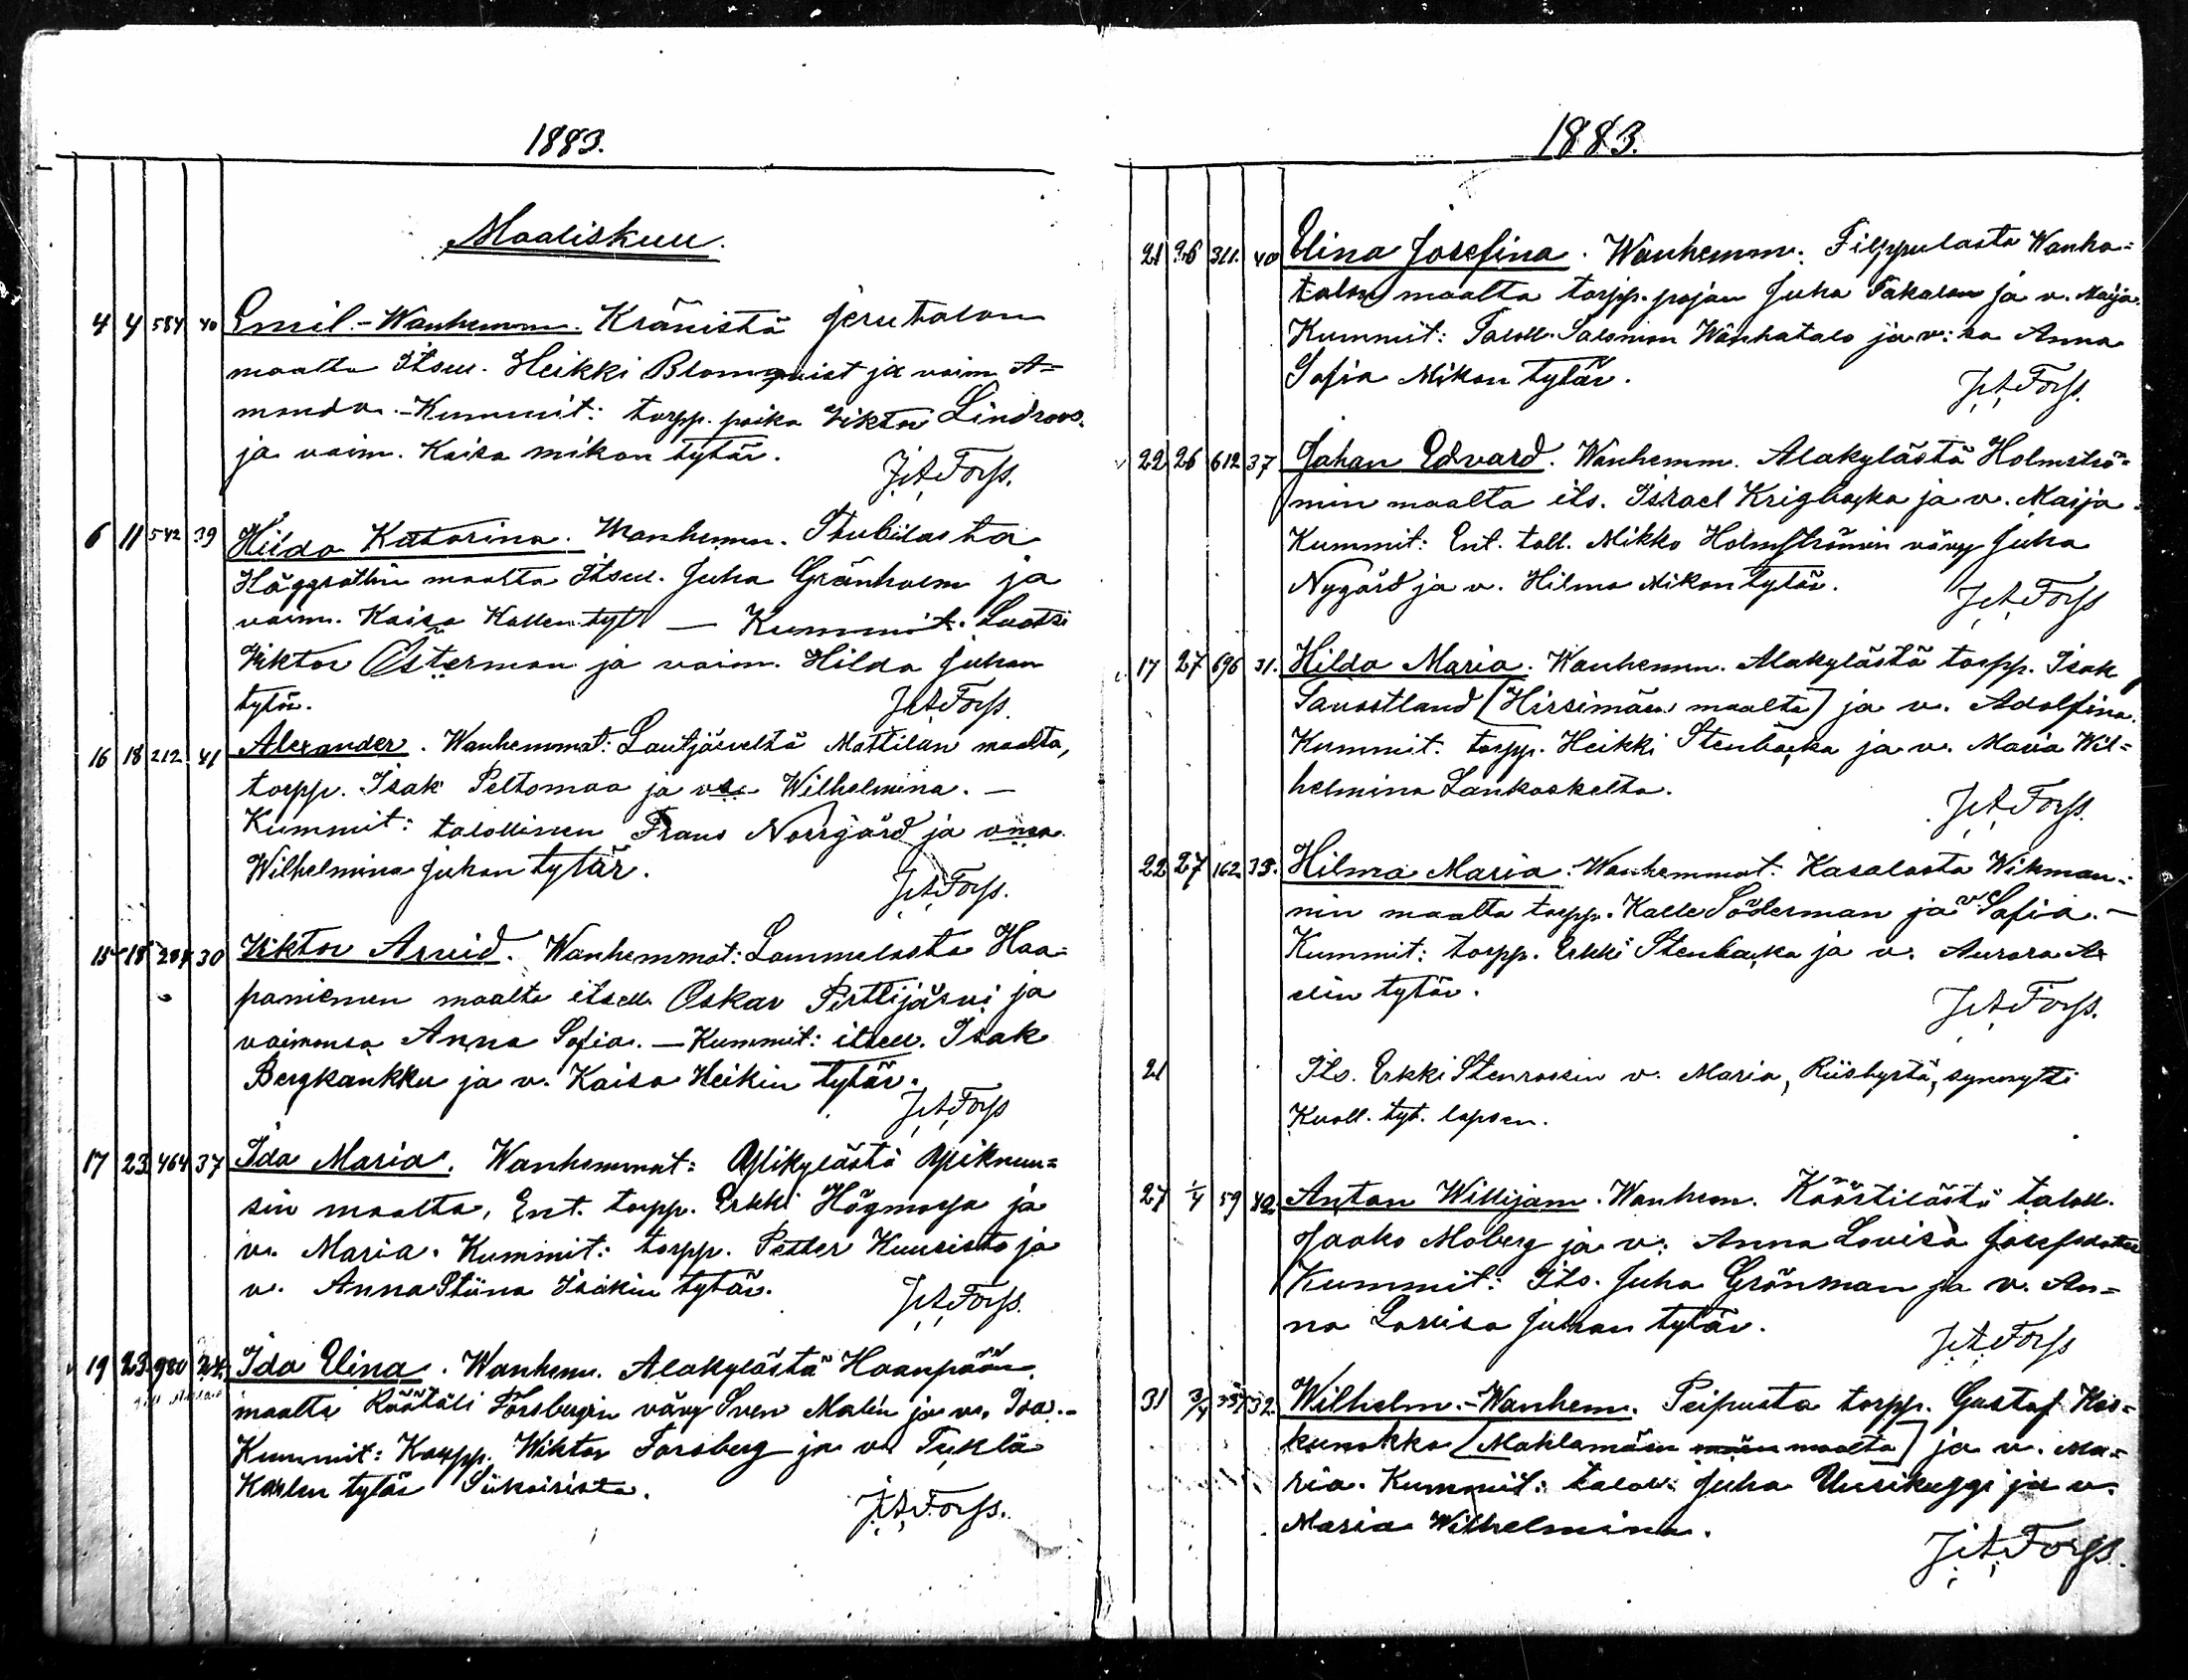 1883.
Maaliskuu.
4 4 584 40 Emil.-Wanhemm. Kränistä Jerutalon
maalta Itsell. Heikki Blomqvist ja vaim. A=
manda.-Kummit: torpp. poika Viktor Lindroos
ja vaim. Kaisa mikon tytär.
J. A. Forss.
6 11 542 39 Hilda Katarina. Wanhemm. Stubilasta
Häggrothin maalta Itsell. Juha Gränholm ja
vaim. Kaisa Kallen tyt — Kummit. Luotsi
Viktor Österman ja vaim. Hilda Juhan
tytär.
J. A. Forss.
16 18 212 41 Alexander. Wanhemmat: Lautjärveltä Mattilan maalta,
torpp. Isak Peltomaa ja vsa Wilhelmina. —
Kummit: talollinen Frans Norrgård ja vnsa
Wilhelmina Juhan tytär.
J. A. Forss.
15 18 284 30 Viktor Arvid. Wanhemmat: Lammelasta Haa=
paniemen maalta itsell. Oskar Perttijärvi ja
vaimonsa Anna Sofia. — Kummit: itsell. Isak
Bergkaukku ja v. Kaisa Heikin tytär.
J. A. Forss
17 23 464 37 Ida Maria. Wanhemmat: Ylikylästä
sin maalta, Ent. torpp. Erkki Högmossa ja
v. Maria. Kummit: torpp. Petter Kuusisto ja
v. Anna Stiina Isakin tytär.
J. A. Forss.
19 23 980 Ida Elina. Wanhem. Alakylästä Haanpään
maalta Räätäli Forsbergin vävy Sven Malin ja v. Ida.-
Kummit: Kaupp. Wiktor Forsberg ja v. Tekla
Karlen tytär Siikaisista.
J. A. Forss.
1883.
21 26 311 40 Elina Josefina. Wanhemm. Filppulasta Wanha=
talon maalta torpp. pojan Juha Takalan ja v. Maija.
Kummit: Taloll. Salomon Wanhatalo ja v:sa Anna
Sofia Mikon tytär.
J. A. Forss.
22 26 612 37 Johan Edvard. Wanhemm. Alakylästä Holmströ=
min maalta its. Israel Krigbacka ja v. Maija.
Kummit: Ent. tall. Mikko Holmströmin vävy Juha
Nygård ja v. Hilma Mikon tytär.
J. A. Forss
17 27 696 31. Hilda Maria. Wanhemm. Alakylästä torpp. Isak
[Hirsimäen maalta] ja v. Adolfina.
Kummit. torpp. Heikki Stenbacka ja v. Maria Wil=
helmina Lankoskelta.
J. A. Forss.
22 27 162 Hilma Maria. Wanhemmat. Kasalasta Wikman=
nin maalta torpp. Kalle Söderman ja v Sofia. —
Kummit: torpp. Erkki Stenbacka ja v. Aurora
tytär.
J. A. Forss.
21 Its. Erkki Stenroosin v. Maria, Riisbystä, synnytti
Kuoll. tyt. lapsen.
27 1/4 59 Anton Willijam. Wanhem. Köörtilästä taloll.
Jaako Moberg ja v. Anna Lovisa Josefsdotter
Kummit: Its. Juha Grönman ja v. An=
na Lovisa Juhan tytär.
J. A. Forss
31 3/4 32. Wilhelm.-Wanhem. Peipusta torpp. Gustaf Kos=
kunokko [Maklamäen maalta] ja v. Ma=
ria. Kummit: taloll. Juha Uusikuggi ja v.
Maria Wilhelmina.
J. A. Forss.